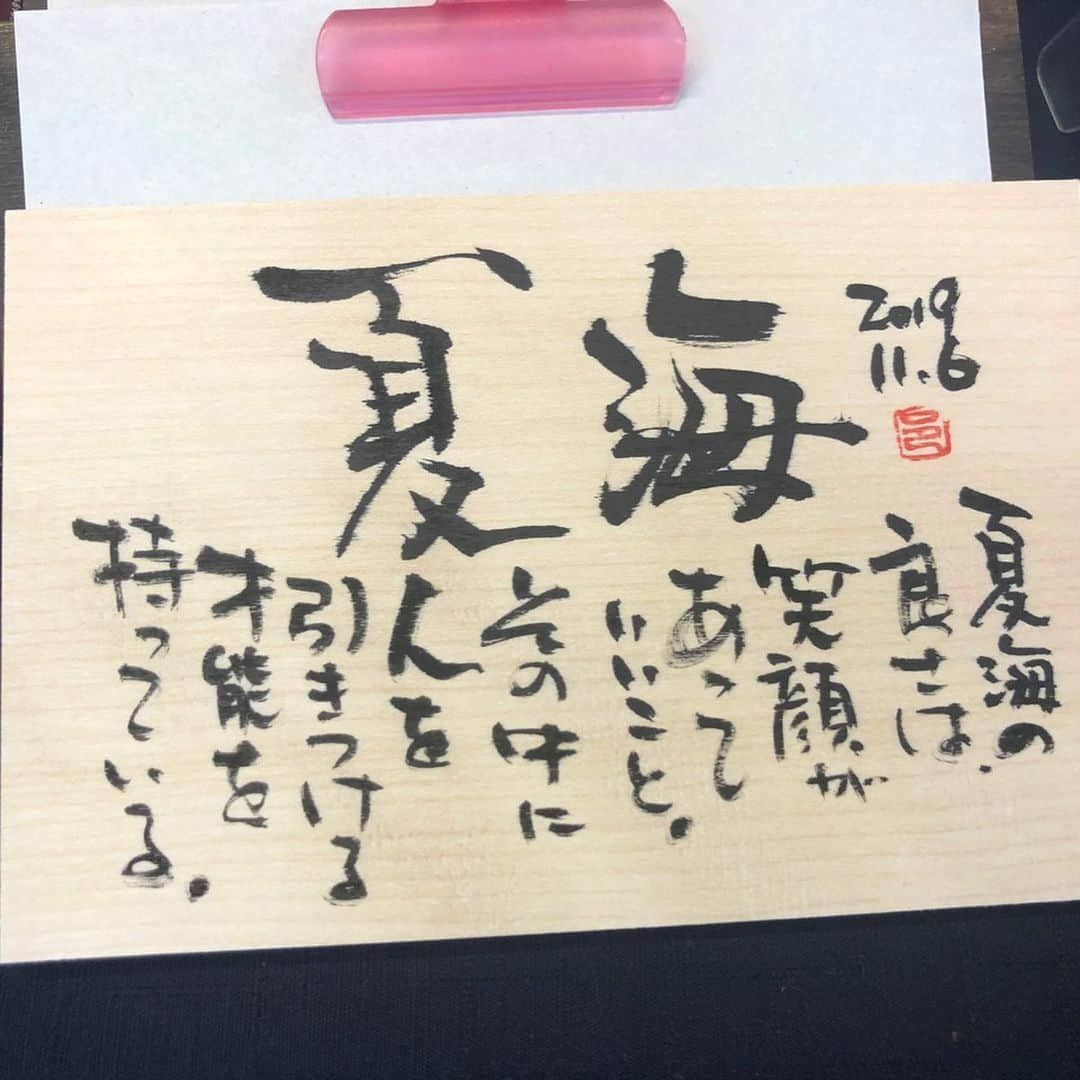 夏海
2019
11.6
夏海の
良さは、
笑顔が
あって
いいこと。
その中に
人を
引きつける
才能を
持っている。